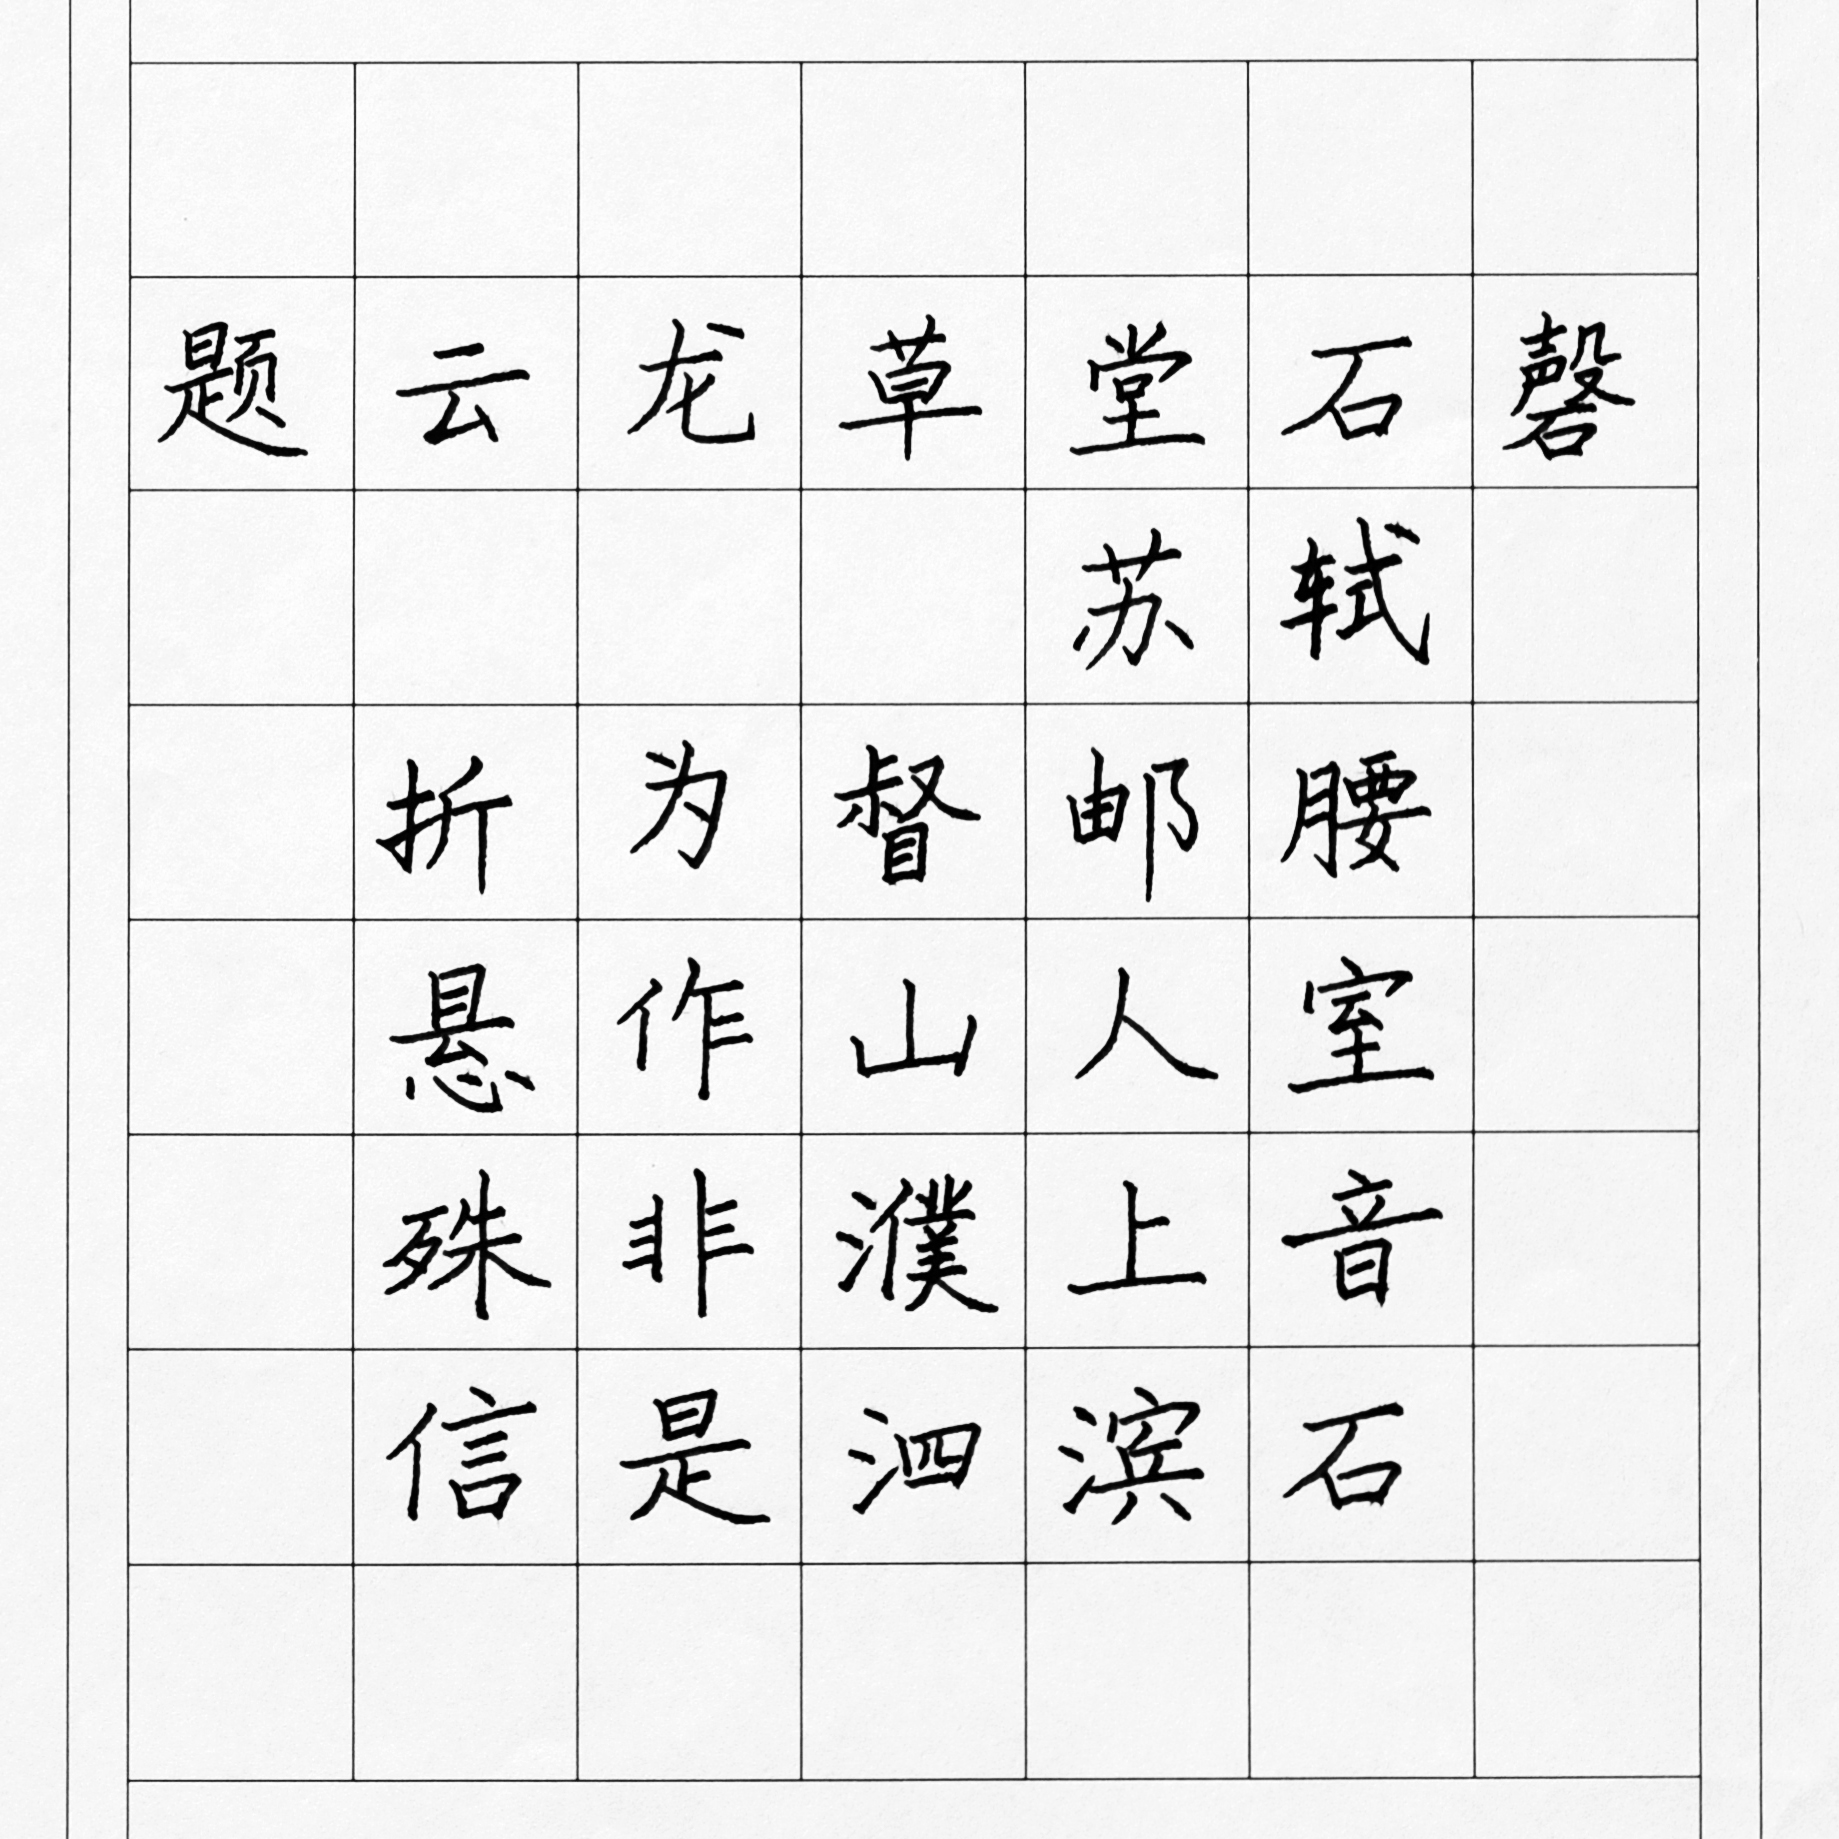 题云龙草堂石磬
苏轼
折为督邮腰
悬作山人室
殊非濮上音
信是泗滨石